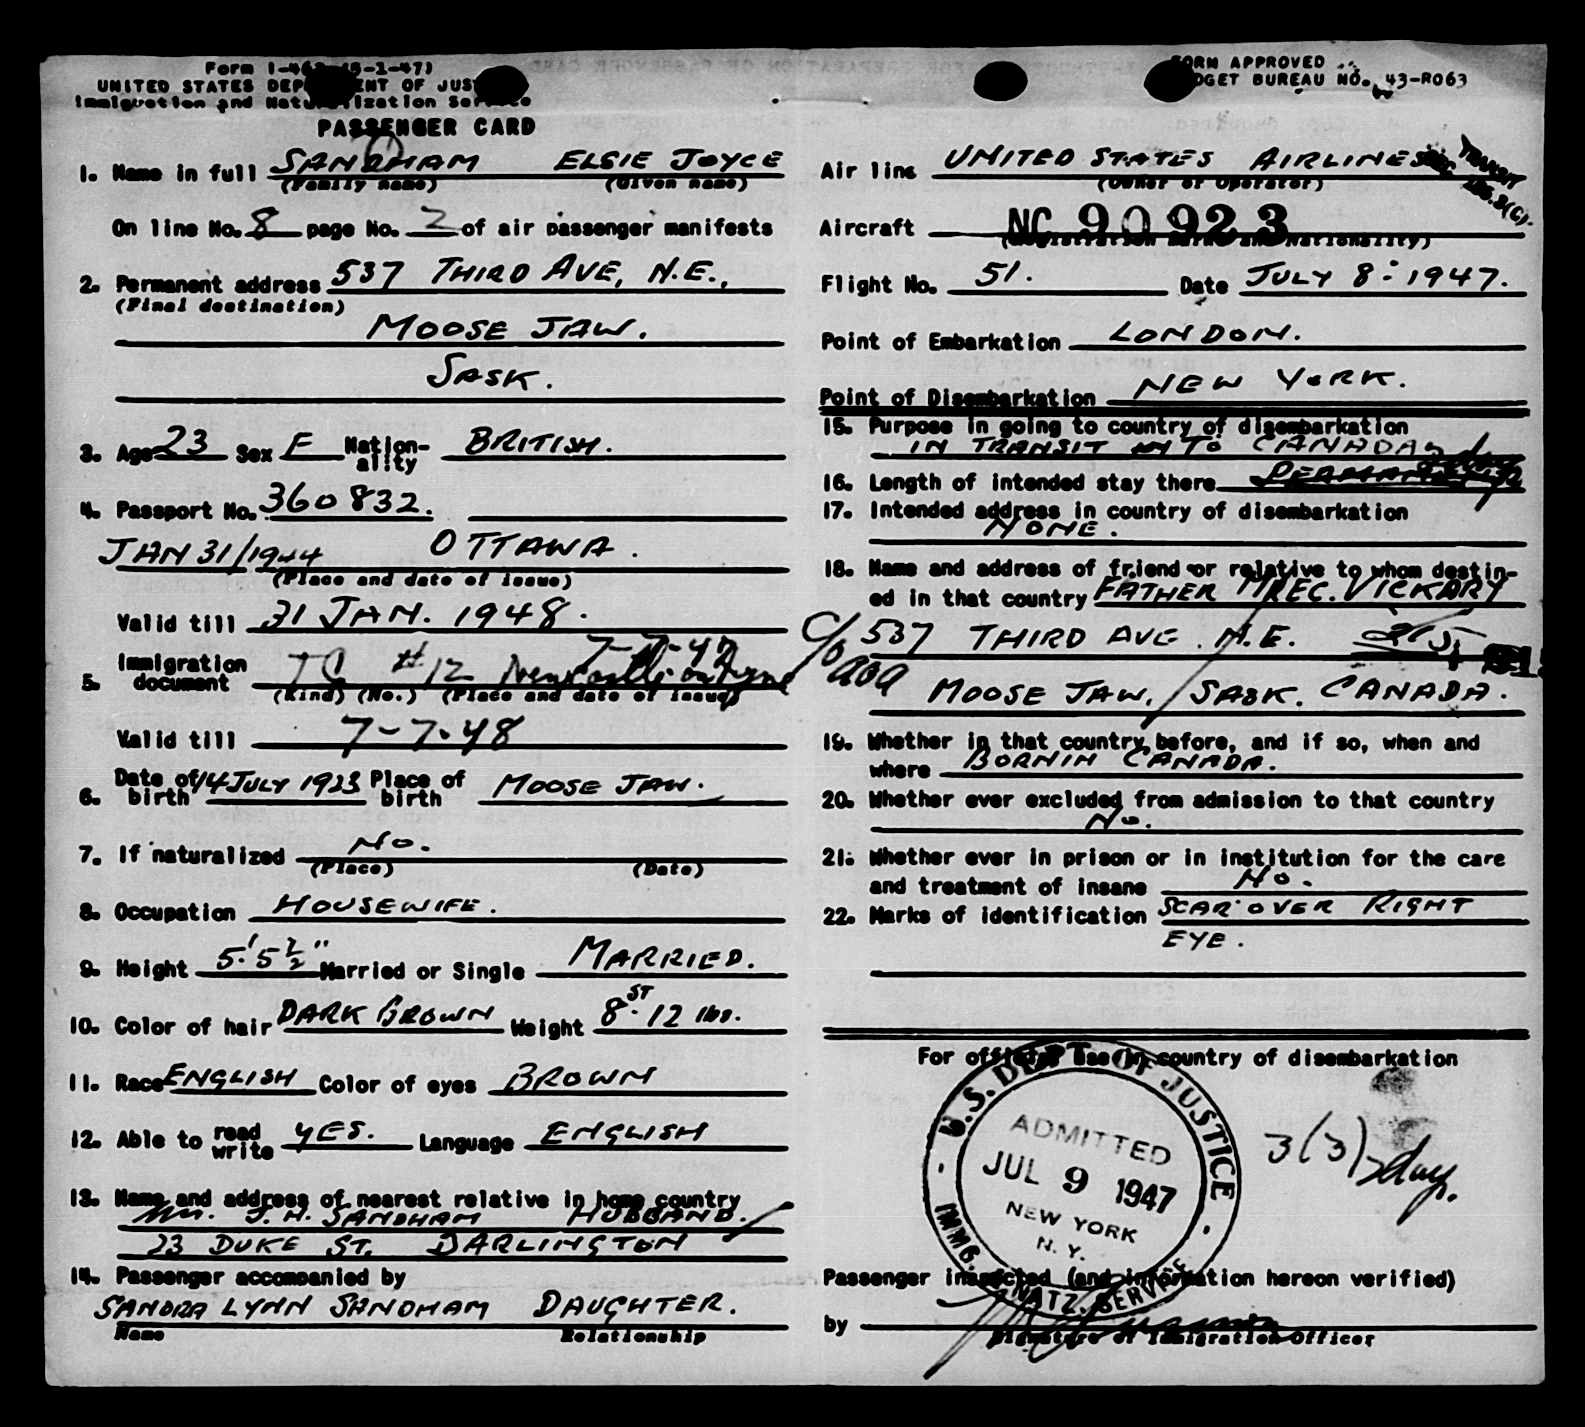 Form I-462 (5-1-47)
UNITED STATES DEPARTMENT OF JUSTICE
Immigration and Naturalization Service
PASSENGER CARD
1. Name in full SANDHAM ELSIE JOYCE
(Family name) (Given name)
On line No. 8 page No. 2 of air passenger manifests
2. Permanent address 537 THIRD AVE, N.E.,
(Final destination)
MOOSE JAW.
SASK.
3. Age 23 Sex F Nation-ality BRITISH.
4. Passport No. 360832.
JAN 31/1944 OTTAWA.
(Place and date of issue)
Valid till 31 JAN. 1948.
7-7-47
5. Immigration document TC #12 Newcastle on Tyne
(Kind) (No.) (Place and date of issue)
Valid till 7-7-48
6. Date of birth 14 JULY 1923 Place of birth MOOSE JAW.
7. If naturalized NO.
(Place) (Date)
8. Occupation HOUSEWIFE.
9. Height 5'.5½" Married or Single MARRIED.
10. Color of hair DARK BROWN Weight 8ST.12 lbs.
11. Race ENGLISH Color of eyes BROWN
12. Able to read write YES. Language ENGLISH
13. Name and address of nearest relative in home country
Mr. J. H. SANDHAM HUSBAND.
23 DUKE ST. DARLINGTON
14. Passenger accompanied by
SANDRA LYNN SANDHAM DAUGHTER.
Name Relationship
FORM APPROVED
BUDGET BUREAU NO. 43-R063
Air line UNITED STATES AIRLINES
(Owner or Operator)
TRANSIT
SEC 3(C).
Aircraft NC 90923
(Registration marks and nationality)
Flight No. 51. Date JULY 8: 1947.
Point of Embarkation LONDON.
Point of Disembarkation NEW YORK.
15. Purpose in going to country of disembarkation
IN TRANSIT TO CANADA
16. Length of intended stay there
17. Intended address in country of disembarkation
NONE.
18. Name and address of friend or relative to whom destin-
ed in that country FATHER MR E C. VICKARY
C/o 537 THIRD AVE. N.E.
MOOSE JAW, SASK. CANADA.
19. Whether in that country before, and if so, when and
where BORN IN CANADA.
20. Whether ever excluded from admission to that country
NO.
21. Whether ever in prison or in institution for the care
and treatment of insane NO.
22. Marks of identification SCAR OVER RIGHT
EYE.
For official use in country of disembarkation
U.S. DEPT. OF JUSTICE
ADMITTED
JUL 9 1947
NEW YORK
N. Y.
IMMG. NATZ. SERVICE
3(3)-day.
Passenger inspected (and information hereon verified)
by
Signature of Immigration Officer